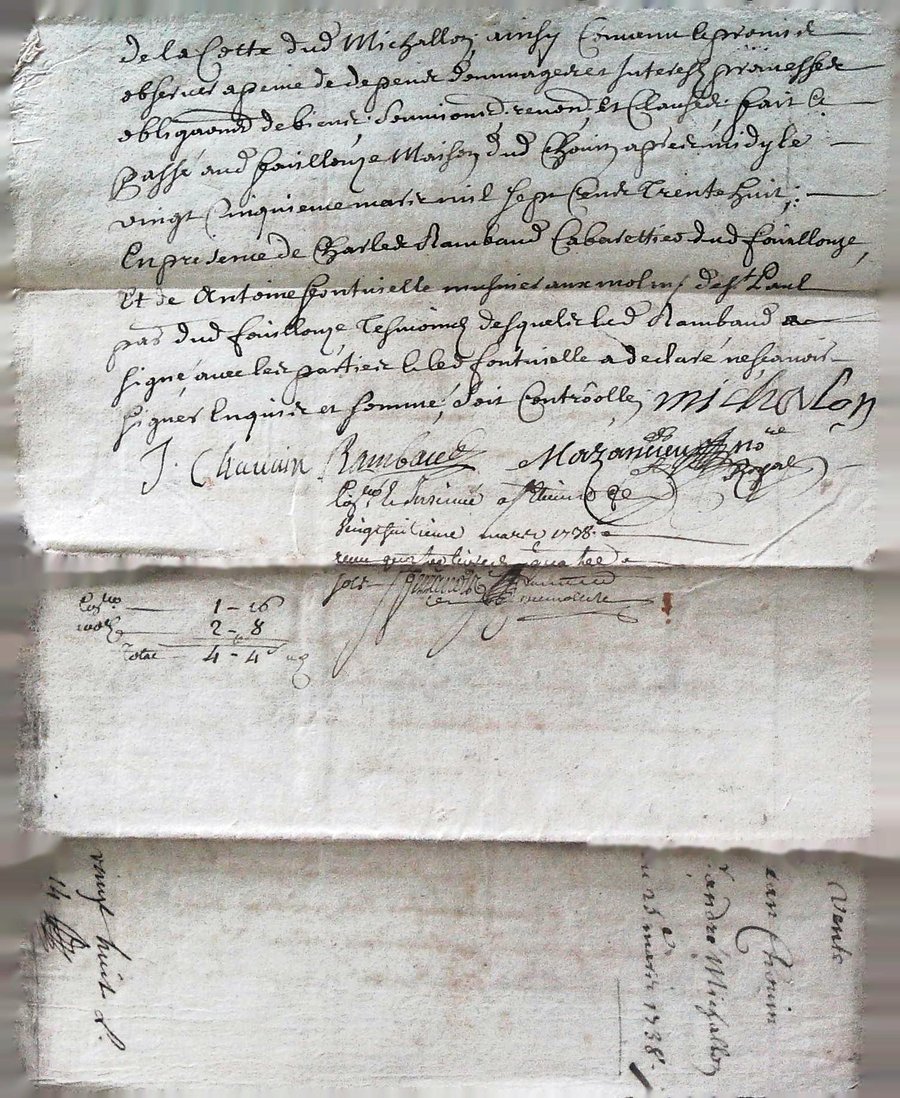 de la Cotte dud Michallon, ainsy Comann le promis
observer a peine de depens dommages et Interests promesses
obligaons de biens, Soumions, renons, et Clauses, fait et
Passé aud fouillouze Maison dud Chouin apres midy le
vingt Cinquieme mars mil sept Cens Trente huit,
En presence de Charles Rambaud Cabarettier dud fouillouze,
Et de Antoine fontvielle musnier aux molins de St Paul
pas dud fouillouze, Tesmoins desquels led Rambaud a
signé, avec les parties et led fontvielle a declaré ne scavoir
signer Enquis et sommé, soit Controollé, michalon
J. Chauain Rambaud Mazancieu no re Royal
St
vingt huitieme mars 1738
recu quatre livres quatre
sols
1 - 16
2 - 8
Total 4 - 4
Vente
Jean Chouin
andré Michallon
25 e mars 1738
vingt huit
14